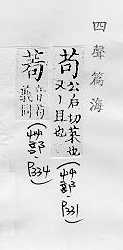 四聲篇海
苟
公后切菜也
又丨且也
(艸部. P331)
音苟
義同
(艸部. P334)